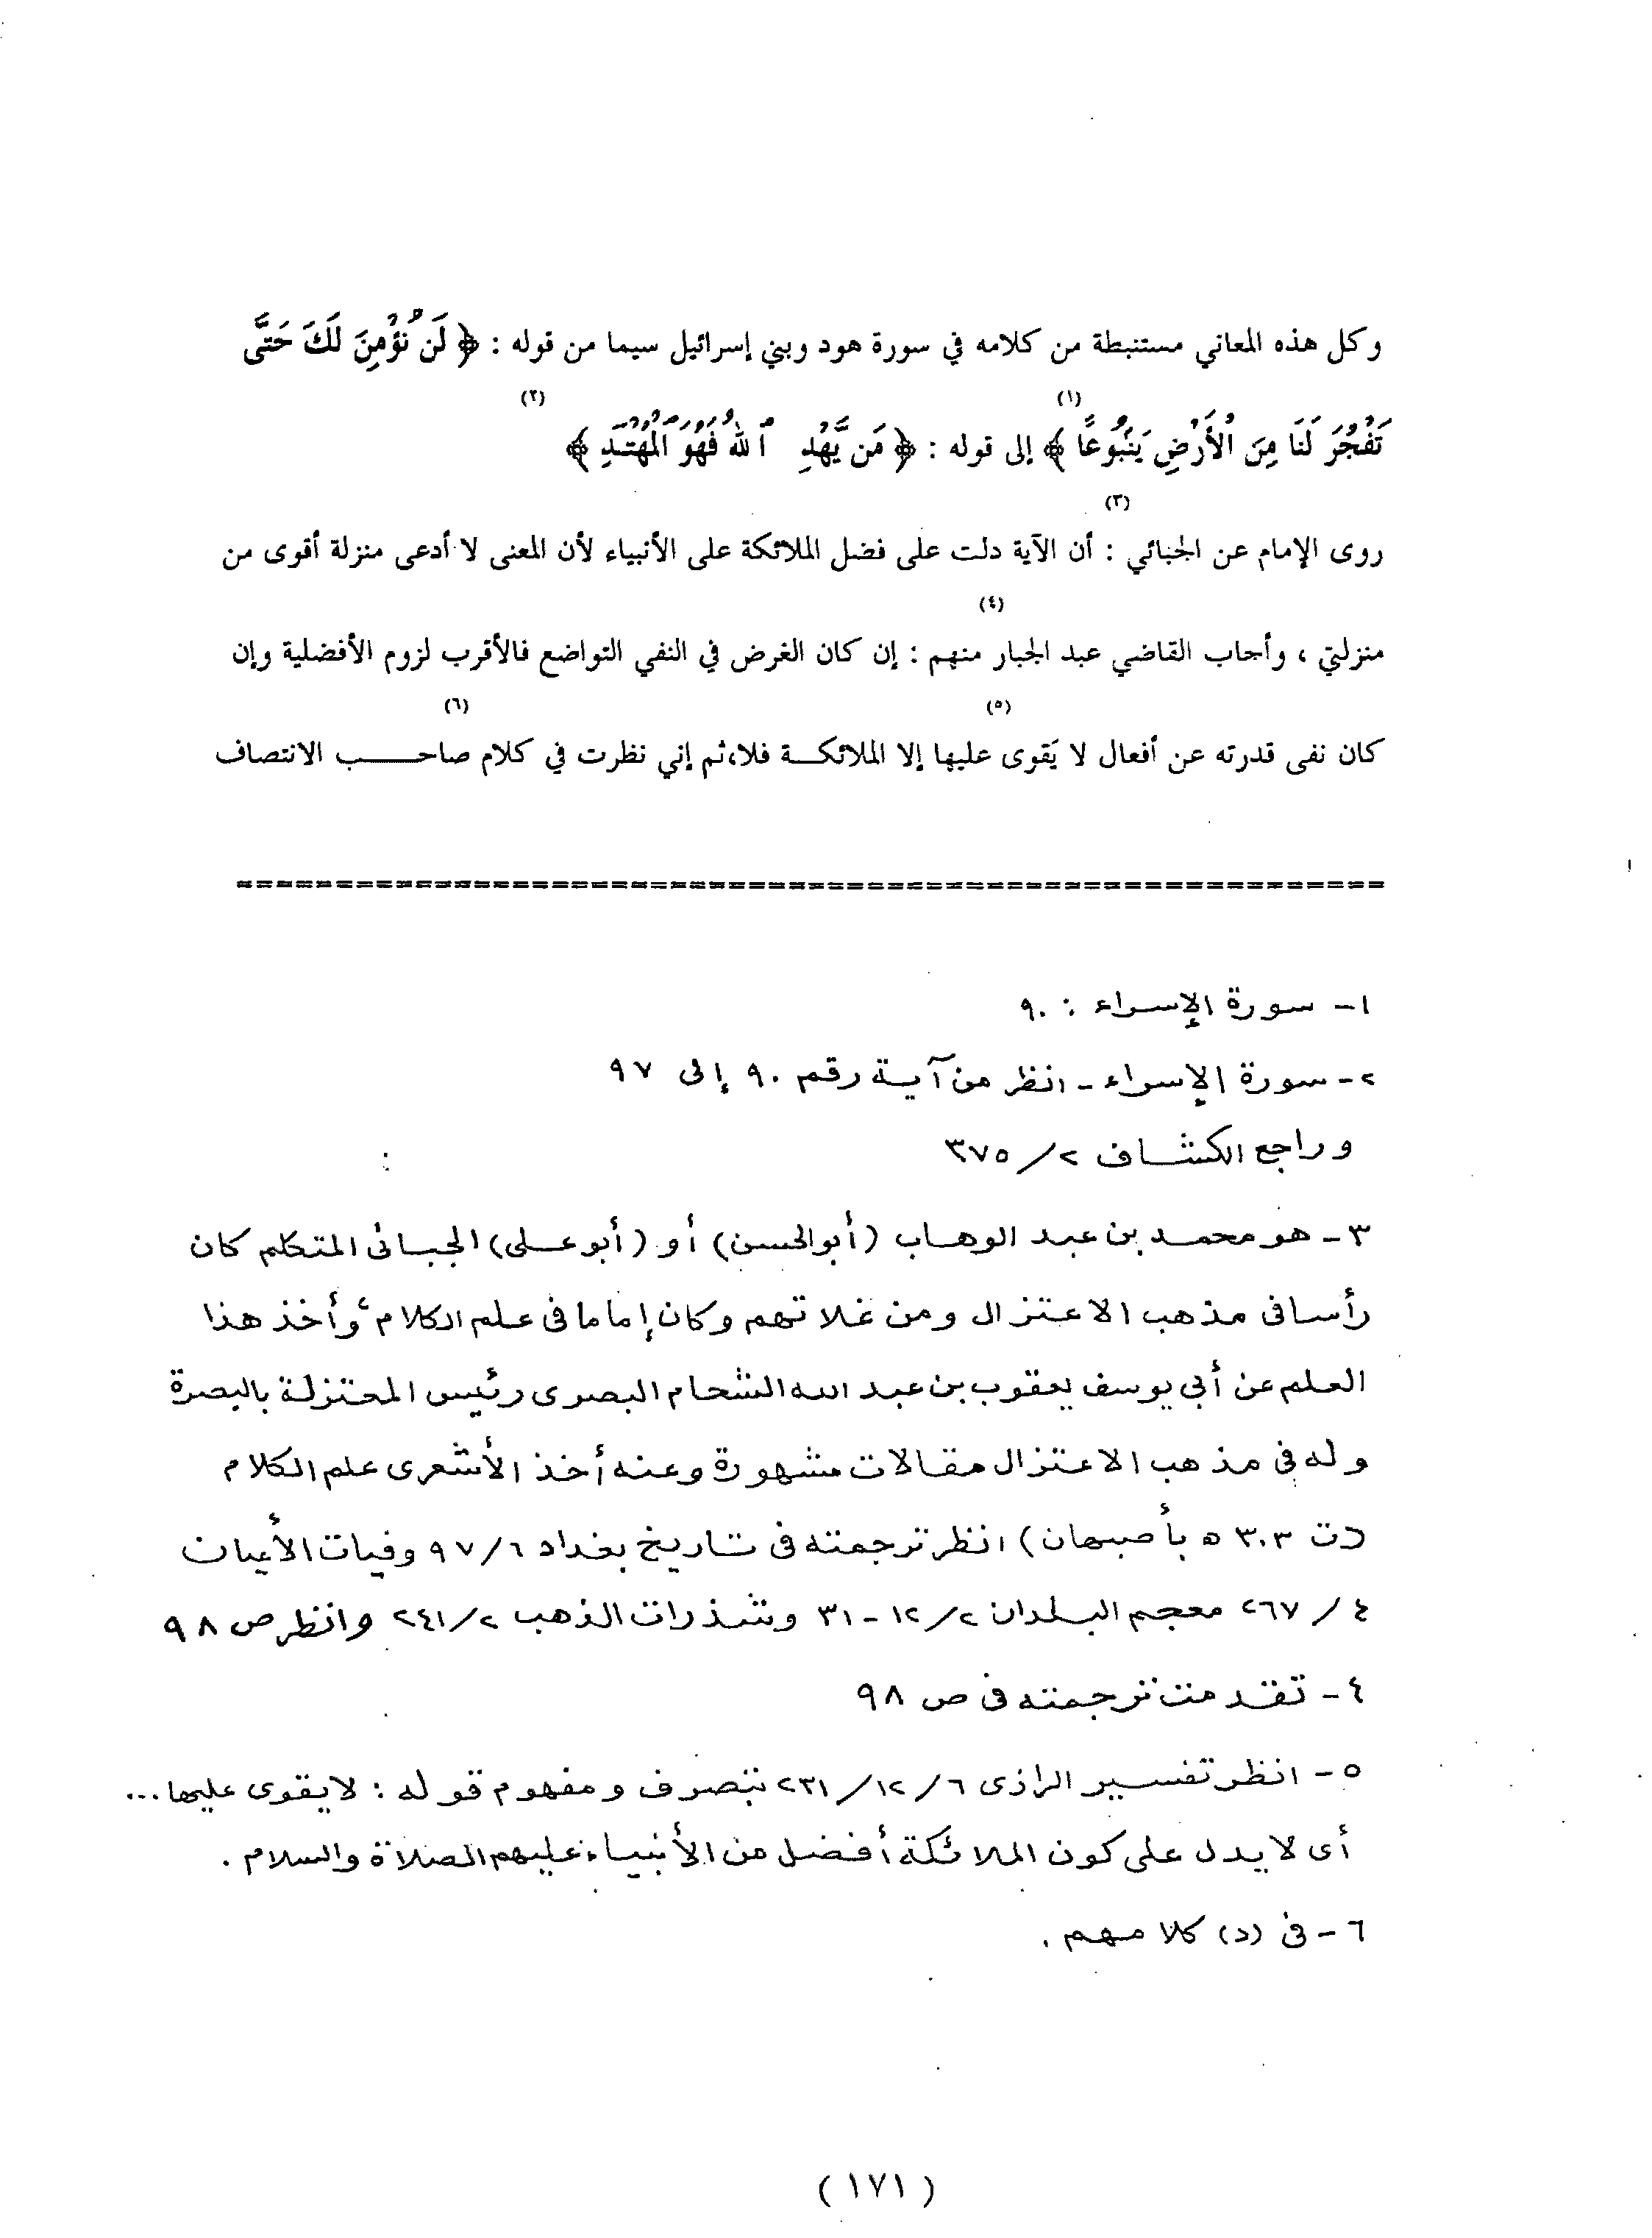 وكل هذه المعاني مستنبطة من كلامه في سورة هود وبني إسرائيل سيما من قوله : ﴿ لَن نُّؤْمِنَ لَكَ حَتَّى
(١) (٢)
تَفْجُرَ لَنَا مِنَ ٱلْأَرْضِ يَنۢبُوعًا ﴾ إلى قوله : ﴿ مَن يَهْدِ ٱللَّهُ فَهُوَ ٱلْمُهْتَدِ ﴾
(٣)
روى الإمام عن الجبائي : أن الآية دلت على فضل الملائكة على الأنبياء لأن المعنى لا أدعى منزلة أقوى من
(٤)
منزلتي ، وأجاب القاضي عبد الجبار منهم : إن كان الغرض في النفي التواضع فالأقرب لزوم الأفضلية وإن
(٥) (٦)
كان نفى قدرته عن أفعال لا يَقوى عليها إلا الملائكـــة فلا، ثم إني نظرت في كلام صاحـــــب الانتصاف
================================================
١- سورة الإسراء : ٩٠
٢- سورة الإسراء - انظر من آية رقم ٩٠ إلى ٩٧
وراجع الكشاف ٢/ ٣٧٥
٣- هو محمد بن عبد الوهاب (أبوالحسن) أو (أبو على) الجبائى المتكلم كان
رأسا فى مذهب الاعتزال ومن غلاتهم وكان إماما فى علم الكلام، وأخذ هذا
العلم عن أبي يوسف يعقوب بن عبد الله الشحام البصرى رئيس المعتزلة بالبصرة
وله فى مذهب الاعتزال مقالات مشهورة وعنه أخذ الأشعرى علم الكلام
(ت ٣٠٣ ه بأصبهان) انظر ترجمته فى تاريخ بغداد ٦/ ٩٧ وفيات الأعيان
٤/ ٢٦٧ معجم البلدان ٢/ ١٢ - ٣١ وشذرات الذهب ٢/ ٢٤١ وانظر ص ٩٨
٤- تقدمت ترجمته فى ص ٩٨
٥- انظر تفسير الرازى ٦/ ١٢/ ٢٣١ بتصرف ومفهوم قوله : لا يقوى عليها ...
أى لا يدل على كون الملائكة أفضل من الأنبياء عليهم الصلاة والسلام .
٦- فى (د) كلامهم .
( ١٧١ )